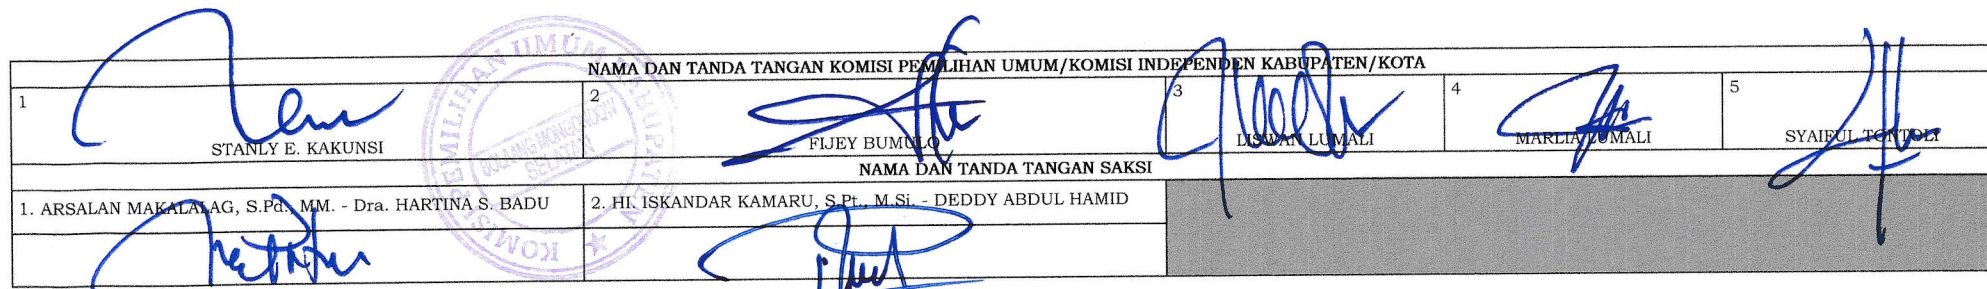 NAMA DAN TANDA TANGAN KOMISI PEMILIHAN UMUM/KOMISI INDEPENDEN KABUPATEN/KOTA
1 2 3 4 5
STANLY E. KAKUNSI FIJEY BUMULO LISWAN LUMALI MARLIA LUMALI SYAIFUL TONTOLI
NAMA DAN TANDA TANGAN SAKSI
1. ARSALAN MAKALALAG, S.Pd., MM. - Dra. HARTINA S. BADU 2. HI. ISKANDAR KAMARU, S.Pt., M.Si. - DEDDY ABDUL HAMID
KOMISI PEMILIHAN UMUM KABUPATEN
BOLAANG MONGONDOW
SELATAN